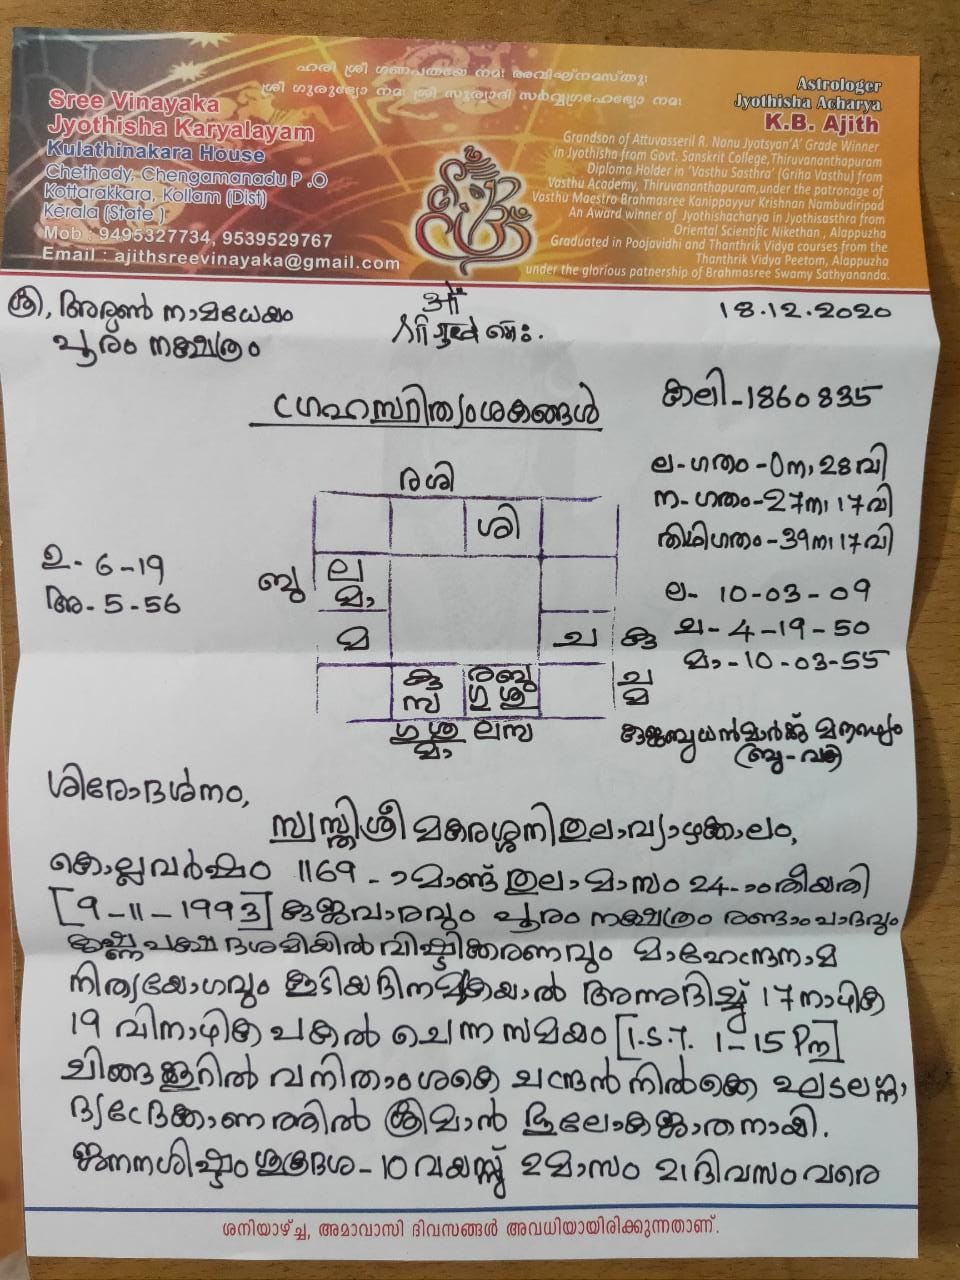 ഹരി ശ്രീ ഗണപതയേ നമഃ അവിഘ്നമസ്തുഃ
ശ്രീ ഗുരുഭ്യോ നമഃ ശ്രീ സൂര്യാദി സർവ്വഗ്രഹേഭ്യോ നമഃ
Sree Vinayaka
Jyothisha Karyalayam
Kulathinakara House
Chethady, Chengamanadu P .O
Kottarakkara, Kollam (Dist)
Kerala (State )
Mob : 9495327734, 9539529767
Email : ajithsreevinayaka@gmail.com
Astrologer
Jyothisha Acharya
K.B. Ajith
Grandson of Attuvasseril R. Nanu Jyotsyan'A' Grade Winner
in Jyothisha from Govt. Sanskrit College,Thiruvananthapuram
Diploma Holder in 'Vasthu Sasthra' (Griha Vasthu) from
Vasthu Academy, Thiruvananthapuram,under the patronage of
Vasthu Maestro Brahmasree Kanippayyur Krishnan Nambudiripad
An Award winner of Jyothishacharya in Jyothisasthra from
Oriental Scientific Nikethan , Alappuzha
Graduated in Poojavidhi and Thanthrik Vidya courses from the
Thanthrik Vidya Peetom, Alappuzha
under the glorious patnership of Brahmasree Swamy Sathyananda.
ശ്രീ, അരുൺ നാമധേയം
പൂരം നക്ഷത്രം
18.12.2020
ഗ്രഹസ്ഥിത്യംശകങ്ങൾ
കലി-1860835
ല-ഗതം-0നാ28വി
ന-ഗതം-27നാ17വി
തിഥിഗതം-39നാ17വി
രശി
ശി
ഉ-6-19
അ-5-56
ബു
ല
മാ
മ
ച
കു
ച
മ
കു
സ
രബു
ഗുശു
ഗുശു ലസ
മാ
ല- 10-03-09
ച-4-19-50
മാ-10-03-55
കുജബുധൻമാർക്ക് മൗഢ്യം
ശിരോദർശനം,
സ്വസ്തിശ്രീ മകരശ്ശനിതുലാവ്യാഴക്കാലം,
കൊല്ലവർഷം 1169-ാമാണ്ട് തുലാമാസം 24-ാംതീയതി
[9-11-1993] കുജവാരവും പൂരം നക്ഷത്രം രണ്ടാംപാദവും
കൃഷ്ണപക്ഷ ദശമിയിൽ വിഷ്ടിക്കരണവും മാഹേന്ദ്രനാമ
നിത്യയോഗവും കൂടിയദിനമാകയാൽ അന്നുദിച്ച് 17നാഴിക
19 വിനാഴിക പകൽ ചെന്ന സമയം [I.S.T. 1-15 Pm]
ചിങ്ങക്കൂറിൽ വനിതാംശകെ ചന്ദ്രൻനിൽക്കെ ഘടലഗ്നാ
ദ്യദ്രേക്കാണത്തിൽ ശ്രീമാൻ ഭൂലോകജാതനായി.
ജനനശിഷ്ടം ശുക്രദശ-10വയസ്സ് 2മാസം 21ദിവസം വരെ
ശനിയാഴ്ച്ച, അമാവാസി ദിവസങ്ങൾ അവധിയായിരിക്കുന്നതാണ്.